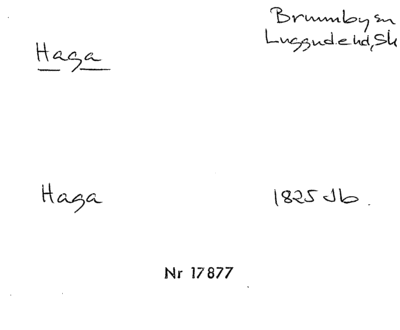 Haga
Brunnby sn
Luggude hd, Sk
Haga
1825 Jb.
Nr 17877